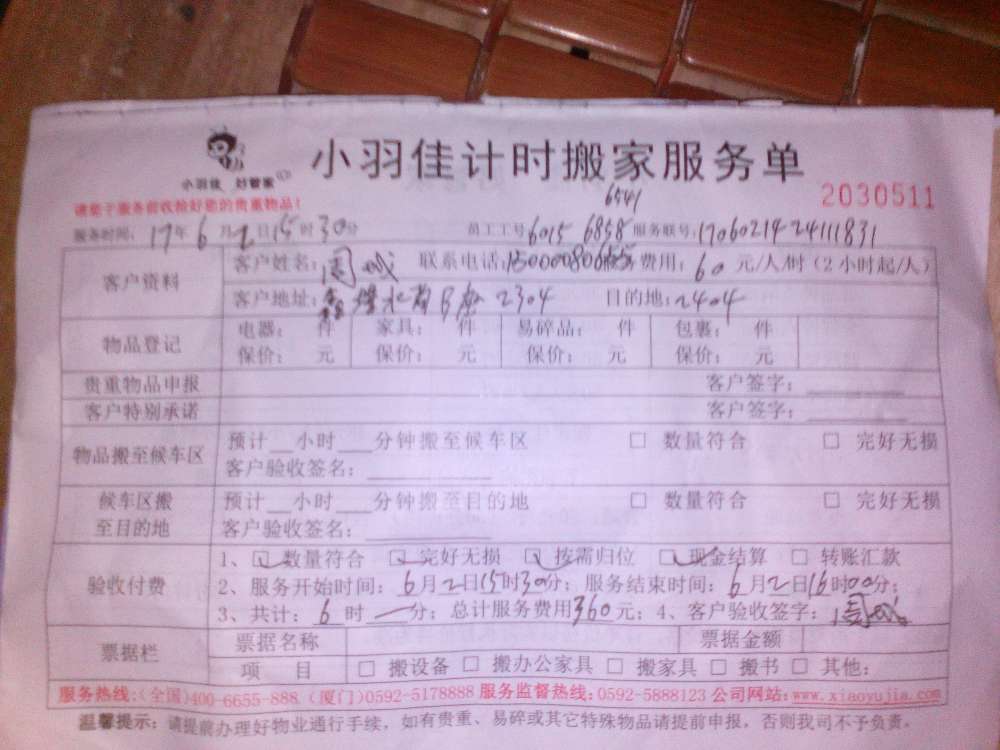 小羽佳计时搬家服务单
小羽佳 好管家
2030511
请您于服务前收拾好您的贵重物品!
6541
服务时间: 17年 6月 2日 15时 30分 员工工号 6015 6858 服务联号: 1706021424111831
客户资料 客户姓名: 周 联系电话: 费用: 60 元/人/时(2小时起/人)
客户地址: 2304 目的地: 2404
物品登记 电器: 件 家具: 件 易碎品: 件 包裹: 件
保价: 元 保价: 元 保价: 元 保价: 元
贵重物品申报 客户签字:
客户特别承诺 客户签字:
物品搬至候车区 预计__小时___分钟搬至候车区 □ 数量符合 □ 完好无损
客户验收签名:
候车区搬至目的地 预计__小时___分钟搬至目的地 □ 数量符合 □ 完好无损
客户验收签名:
验收付费 1、☑ 数量符合 ☑ 完好无损 ☑ 按需归位 ☑ 现金结算 □ 转账汇款
2、服务开始时间: 6月2日15时30分; 服务结束时间: 6月2日16时00分;
3、共计: 6 时 一分; 总计服务费用360元; 4、客户验收签字: 周
票据栏 票据名称 票据金额
项 目 □ 搬设备 □ 搬办公家具 □ 搬家具 □ 搬书 □ 其他:
服务热线:(全国)400-6655-888 (厦门)0592-5178888 服务监督热线:0592-5888123 公司网站:www.xiaoyujia.com
温馨提示: 请提前办理好物业通行手续, 如有贵重、易碎或其它特殊物品请提前申报, 否则我司不予负责。